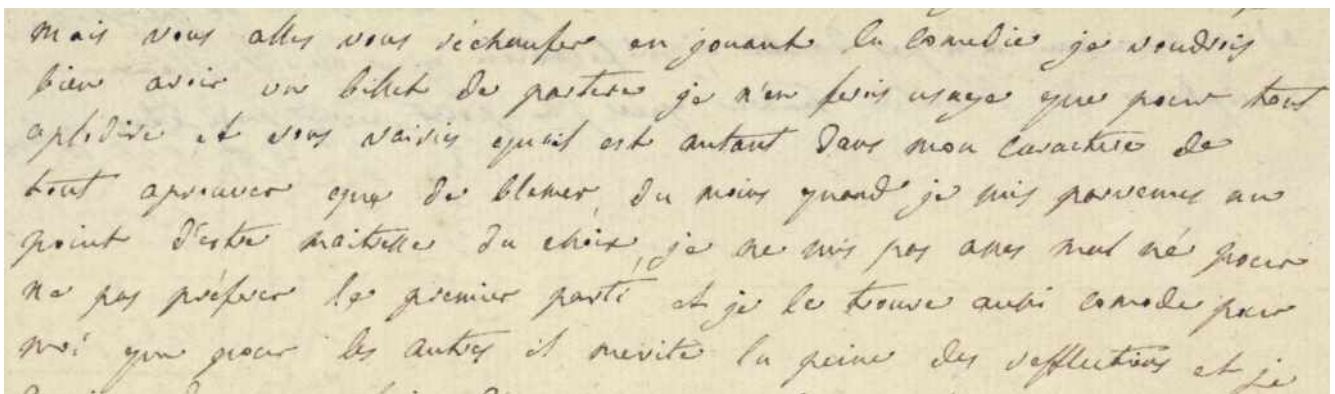 mais vous allés vous réchaufer en jouant la comedie je voudrois
bien avoir un billet de partere je n'en ferois usage que pour tout
aplodire et vous vairiés qu'il est autant dans mon caractere de
tout aprouver que de blamer, du moins quand je suis parvenus au
point d'estre maitresse du choix, je ne suis pas assés mal né pour
ne pas préferer le premier parti et je le trouve aussi comode pour
moi que pour les autres il merite la peine des refflections et je